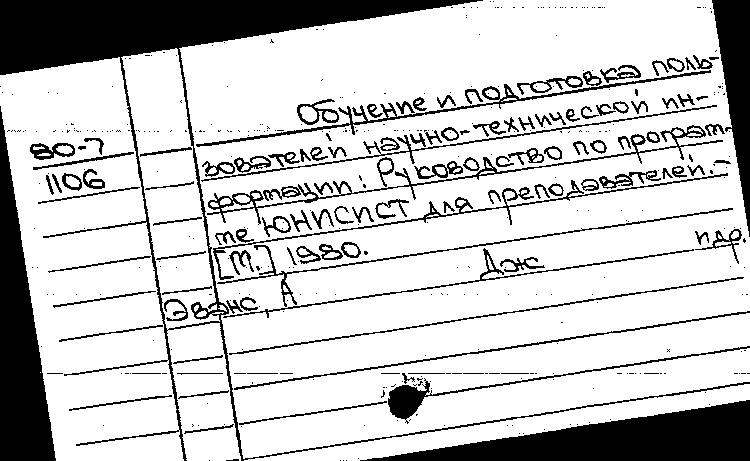 Обучение и подготовка поль-
80-7 зователей научно-технической ин-
1106 формации: Руководство по програм-
ме ЮНИСИСТ для преподавателей.-
[М.], 1980.
Эванс, А Дж идр.